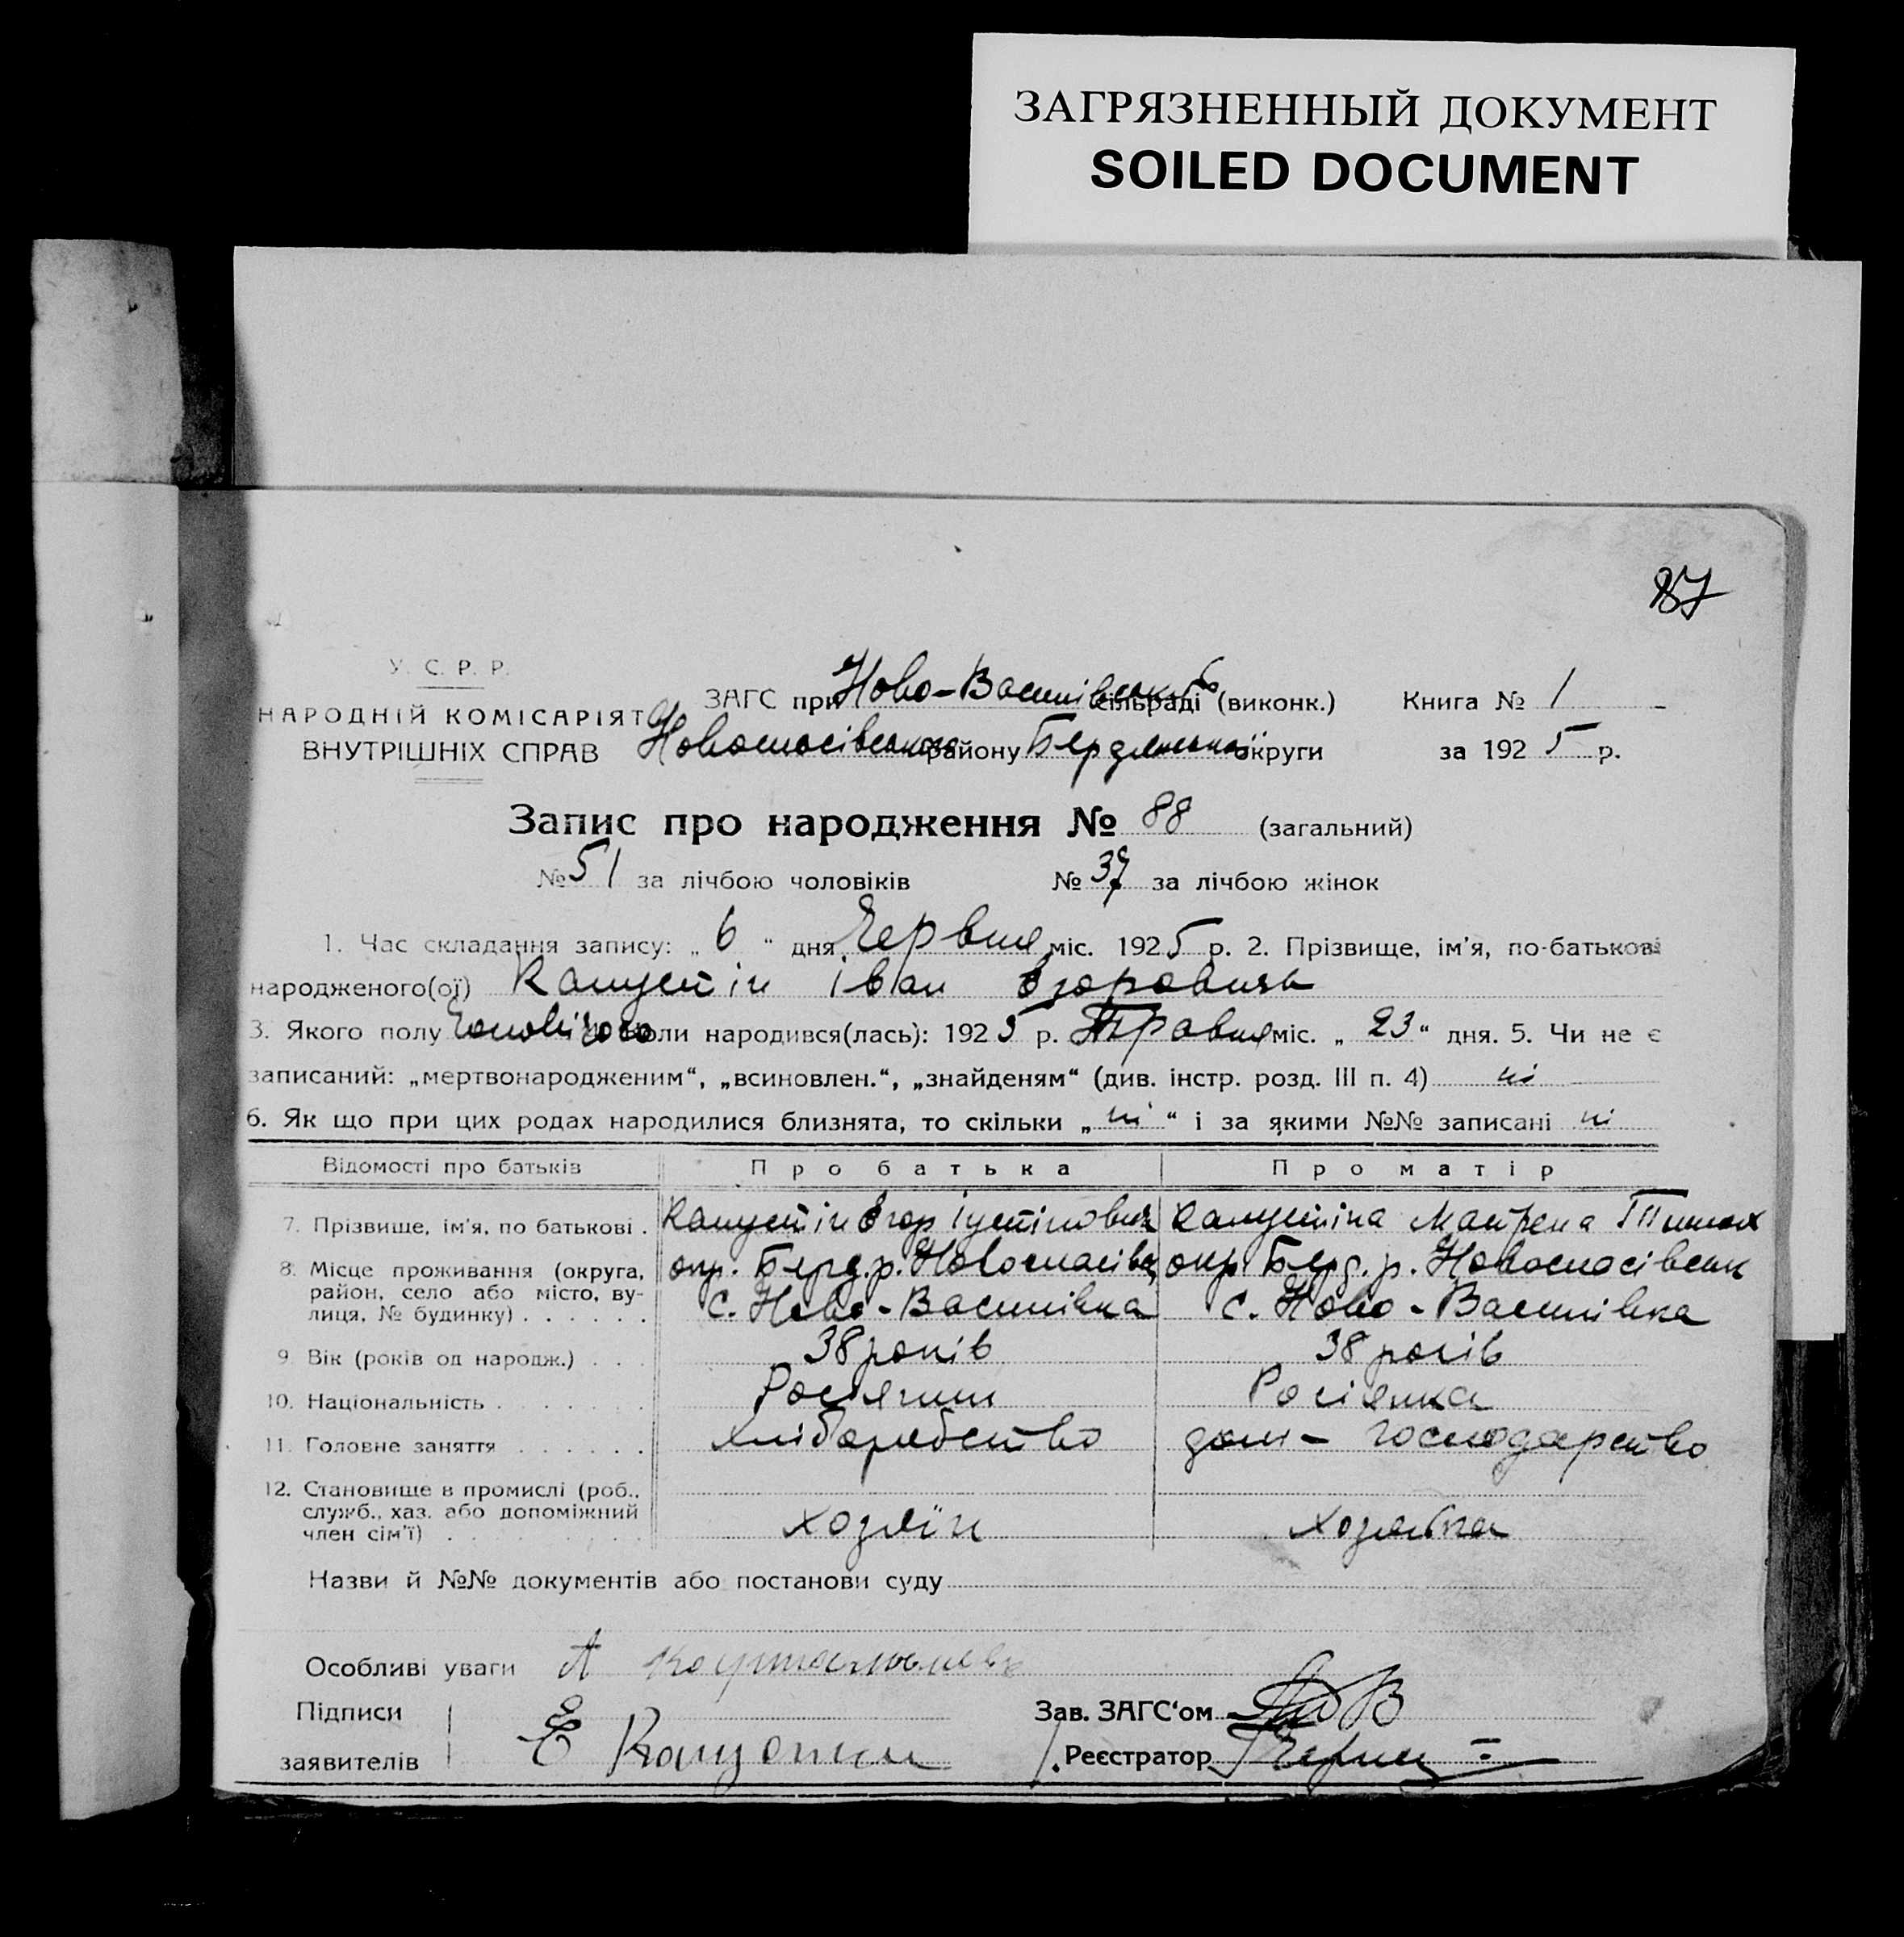 ЗАГРЯЗНЕННЫЙ ДОКУМЕНТ
SOILED DOCUMENT
87
У. С. Р. Р.
НАРОДНІЙ КОМІСАРІЯТ
ВНУТРІШНІХ СПРАВ
ЗАГС при Ново-Василівській сільраді (виконк.) Книга № 1
Новоспасівського району Бердянської округи за 1925 р.
Запис про народження № 88 (загальний)
№ 51 за лічбою чоловіків № 37 за лічбою жінок
1. Час складання запису: „ 6 “ дня Червня міс. 1925 р. 2. Прізвище, ім'я, по-батькові
народженого(ої) Капустін Іван Єгоровичь
3. Якого полу Чоловічого коли народився(лась): 1925 р. Травня міс. „ 23 “ дня. 5. Чи не є
записаний: „мертвонародженим“, „всиновлен.“, „знайденям“ (див. інстр. розд. III п. 4) ні
6. Як що при цих родах народилися близнята, то скільки „ ні “ і за якими №№ записані ні
Відомості про батьків Про батька Про матір
7. Прізвище, ім'я, по батькові . Капустін Єгор Іустінович Капустіна Матрена Тимох
8. Місце проживання (округа, район, село або місто, вулиця, № будинку) . . . . . . окр. Берд. р. Новоспасівськ окр. Берд. р. Новоспасівськ
с. Ново-Василівка с. Ново-Василівка
9. Вік (років од народж.) . . . 38 років 38 років
10. Національність . . . . . . . Росіянин Росіянка
11. Головне заняття . . . . . . хліборобство дом-господарство
12. Становище в промислі (роб., служб., хаз. або допоміжний член сім'ї) . . . . . . . . . хозяїн хозяйка
Назви й №№ документів або постанови суду
Особливі уваги
Підписи
заявителів Е Капустин
Зав. ЗАГС'ом
Реєстратор